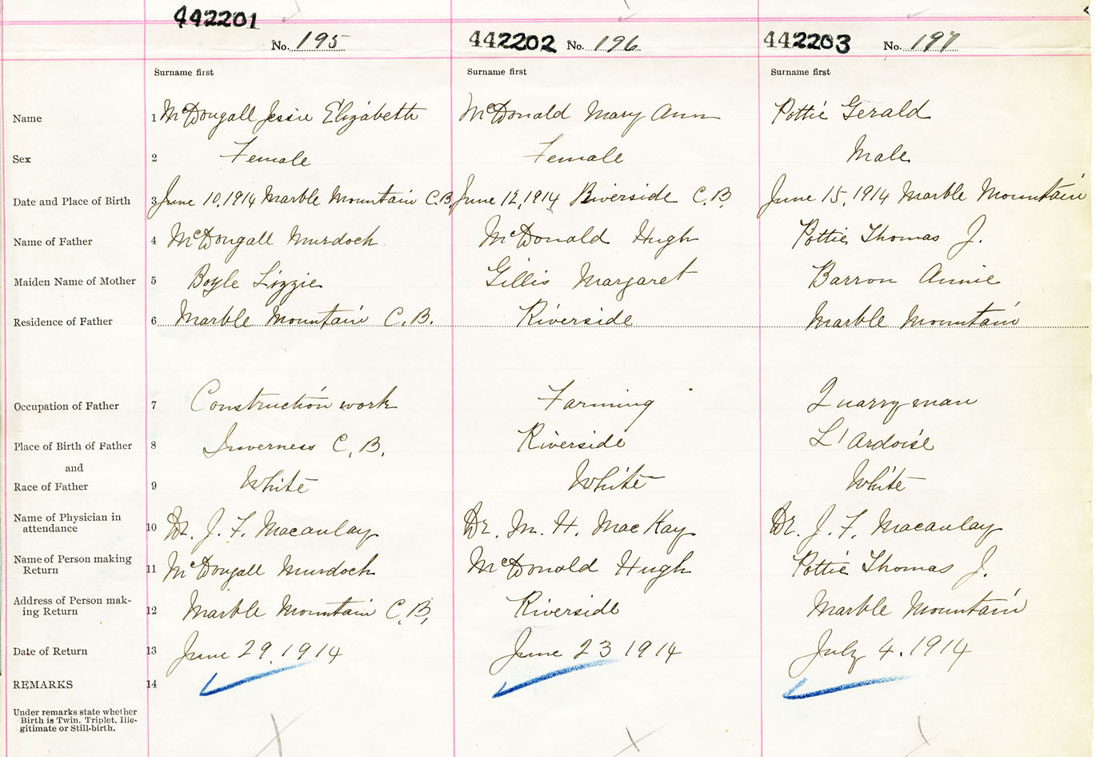 442201
No. 195
442202 No. 196
442203 No. 197
Surname first
Surname first
Surname first
Name 1 McDougall Jessie Elizabeth
McDonald Mary Ann
Pottie Gerald
Sex 2 Female
Female
Male
Date and Place of Birth 3 June 10, 1914 Marble Mountain C.B.
June 12, 1914 Riverside C.B.
June 15, 1914 Marble Mountain
Name of Father 4 McDougall Murdock
McDonald Hugh
Pottie Thomas J.
Maiden Name of Mother 5 Boyle Lizzie
Gillis Margaret
Barron Annie
Residence of Father 6 Marble Mountain C.B.
Riverside
Marble Mountain
Occupation of Father 7 Construction work
Farming
Quarryman
Place of Birth of Father 8 Inverness C.B.
Riverside
L'Ardoise
and
Race of Father 9 White
White
White
Name of Physician in
attendance 10 Dr. J. F. Macaulay
Dr. M. H. MacKay
Dr. J. F. Macaulay
Name of Person making
Return 11 McDougall Murdock
McDonald Hugh
Pottie Thomas J.
Address of Person mak-
ing Return 12 Marble Mountain C.B.
Riverside
Marble Mountain
Date of Return 13 June 29, 1914
June 23 1914
July 4. 1914
REMARKS 14
Under remarks state whether
Birth is Twin, Triplet, Ille-
gitimate or Still-birth.